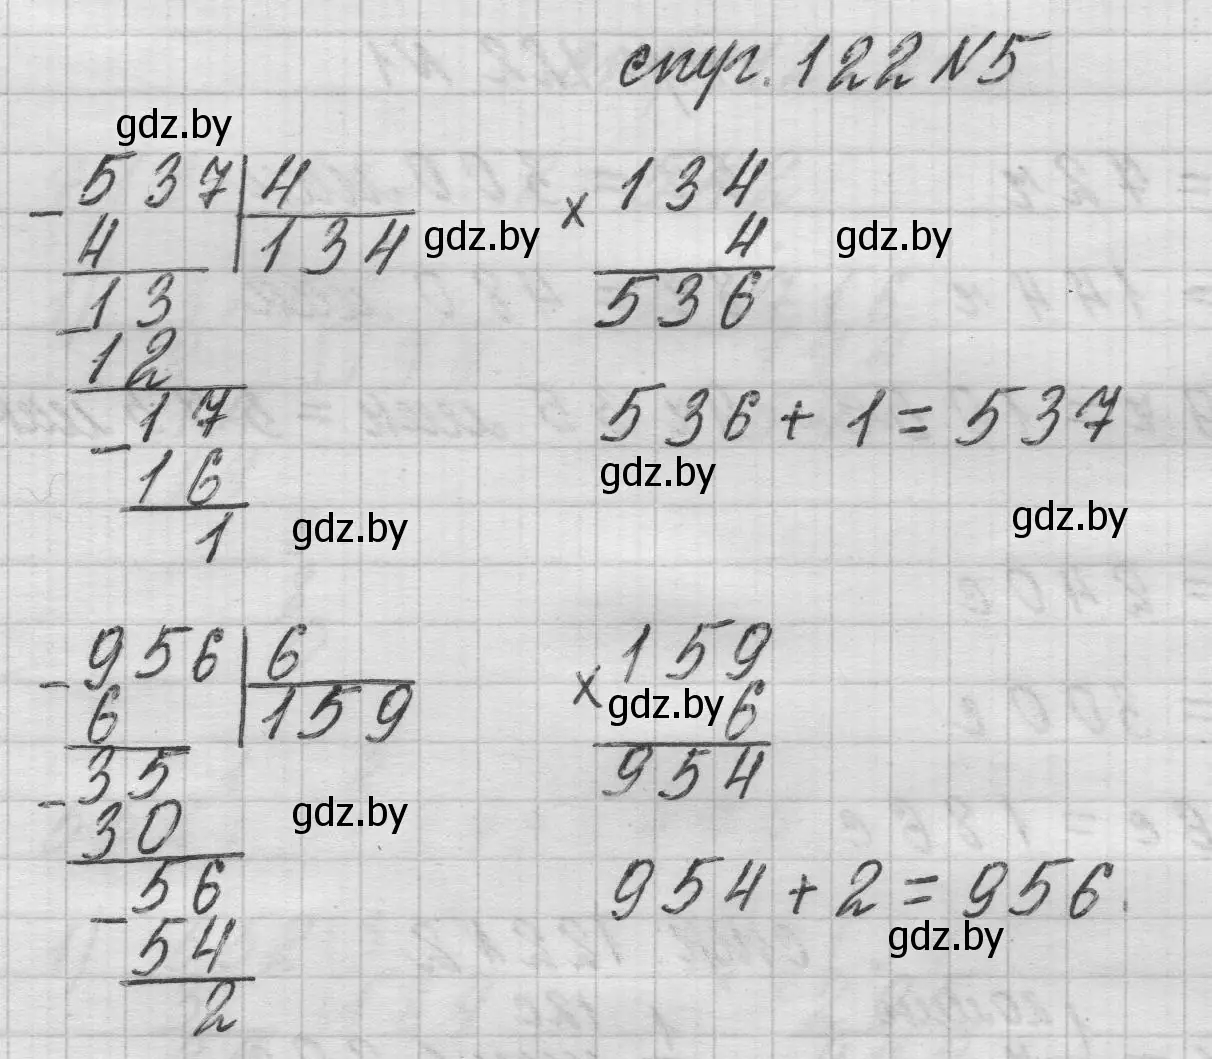 стр. 122 N5
gdz.by
- 537 | 4
4 134
gdz.by
- 13
12
- 17
16
1
gdz.by
x 134
4
gdz.by
536
536 + 1 = 537
gdz.by
gdz.by
- 956 | 6
6 159
- 35
30
gdz.by
- 56
54
2
x 159
gdz.by 6
954
954 + 2 = 956.
gdz.by